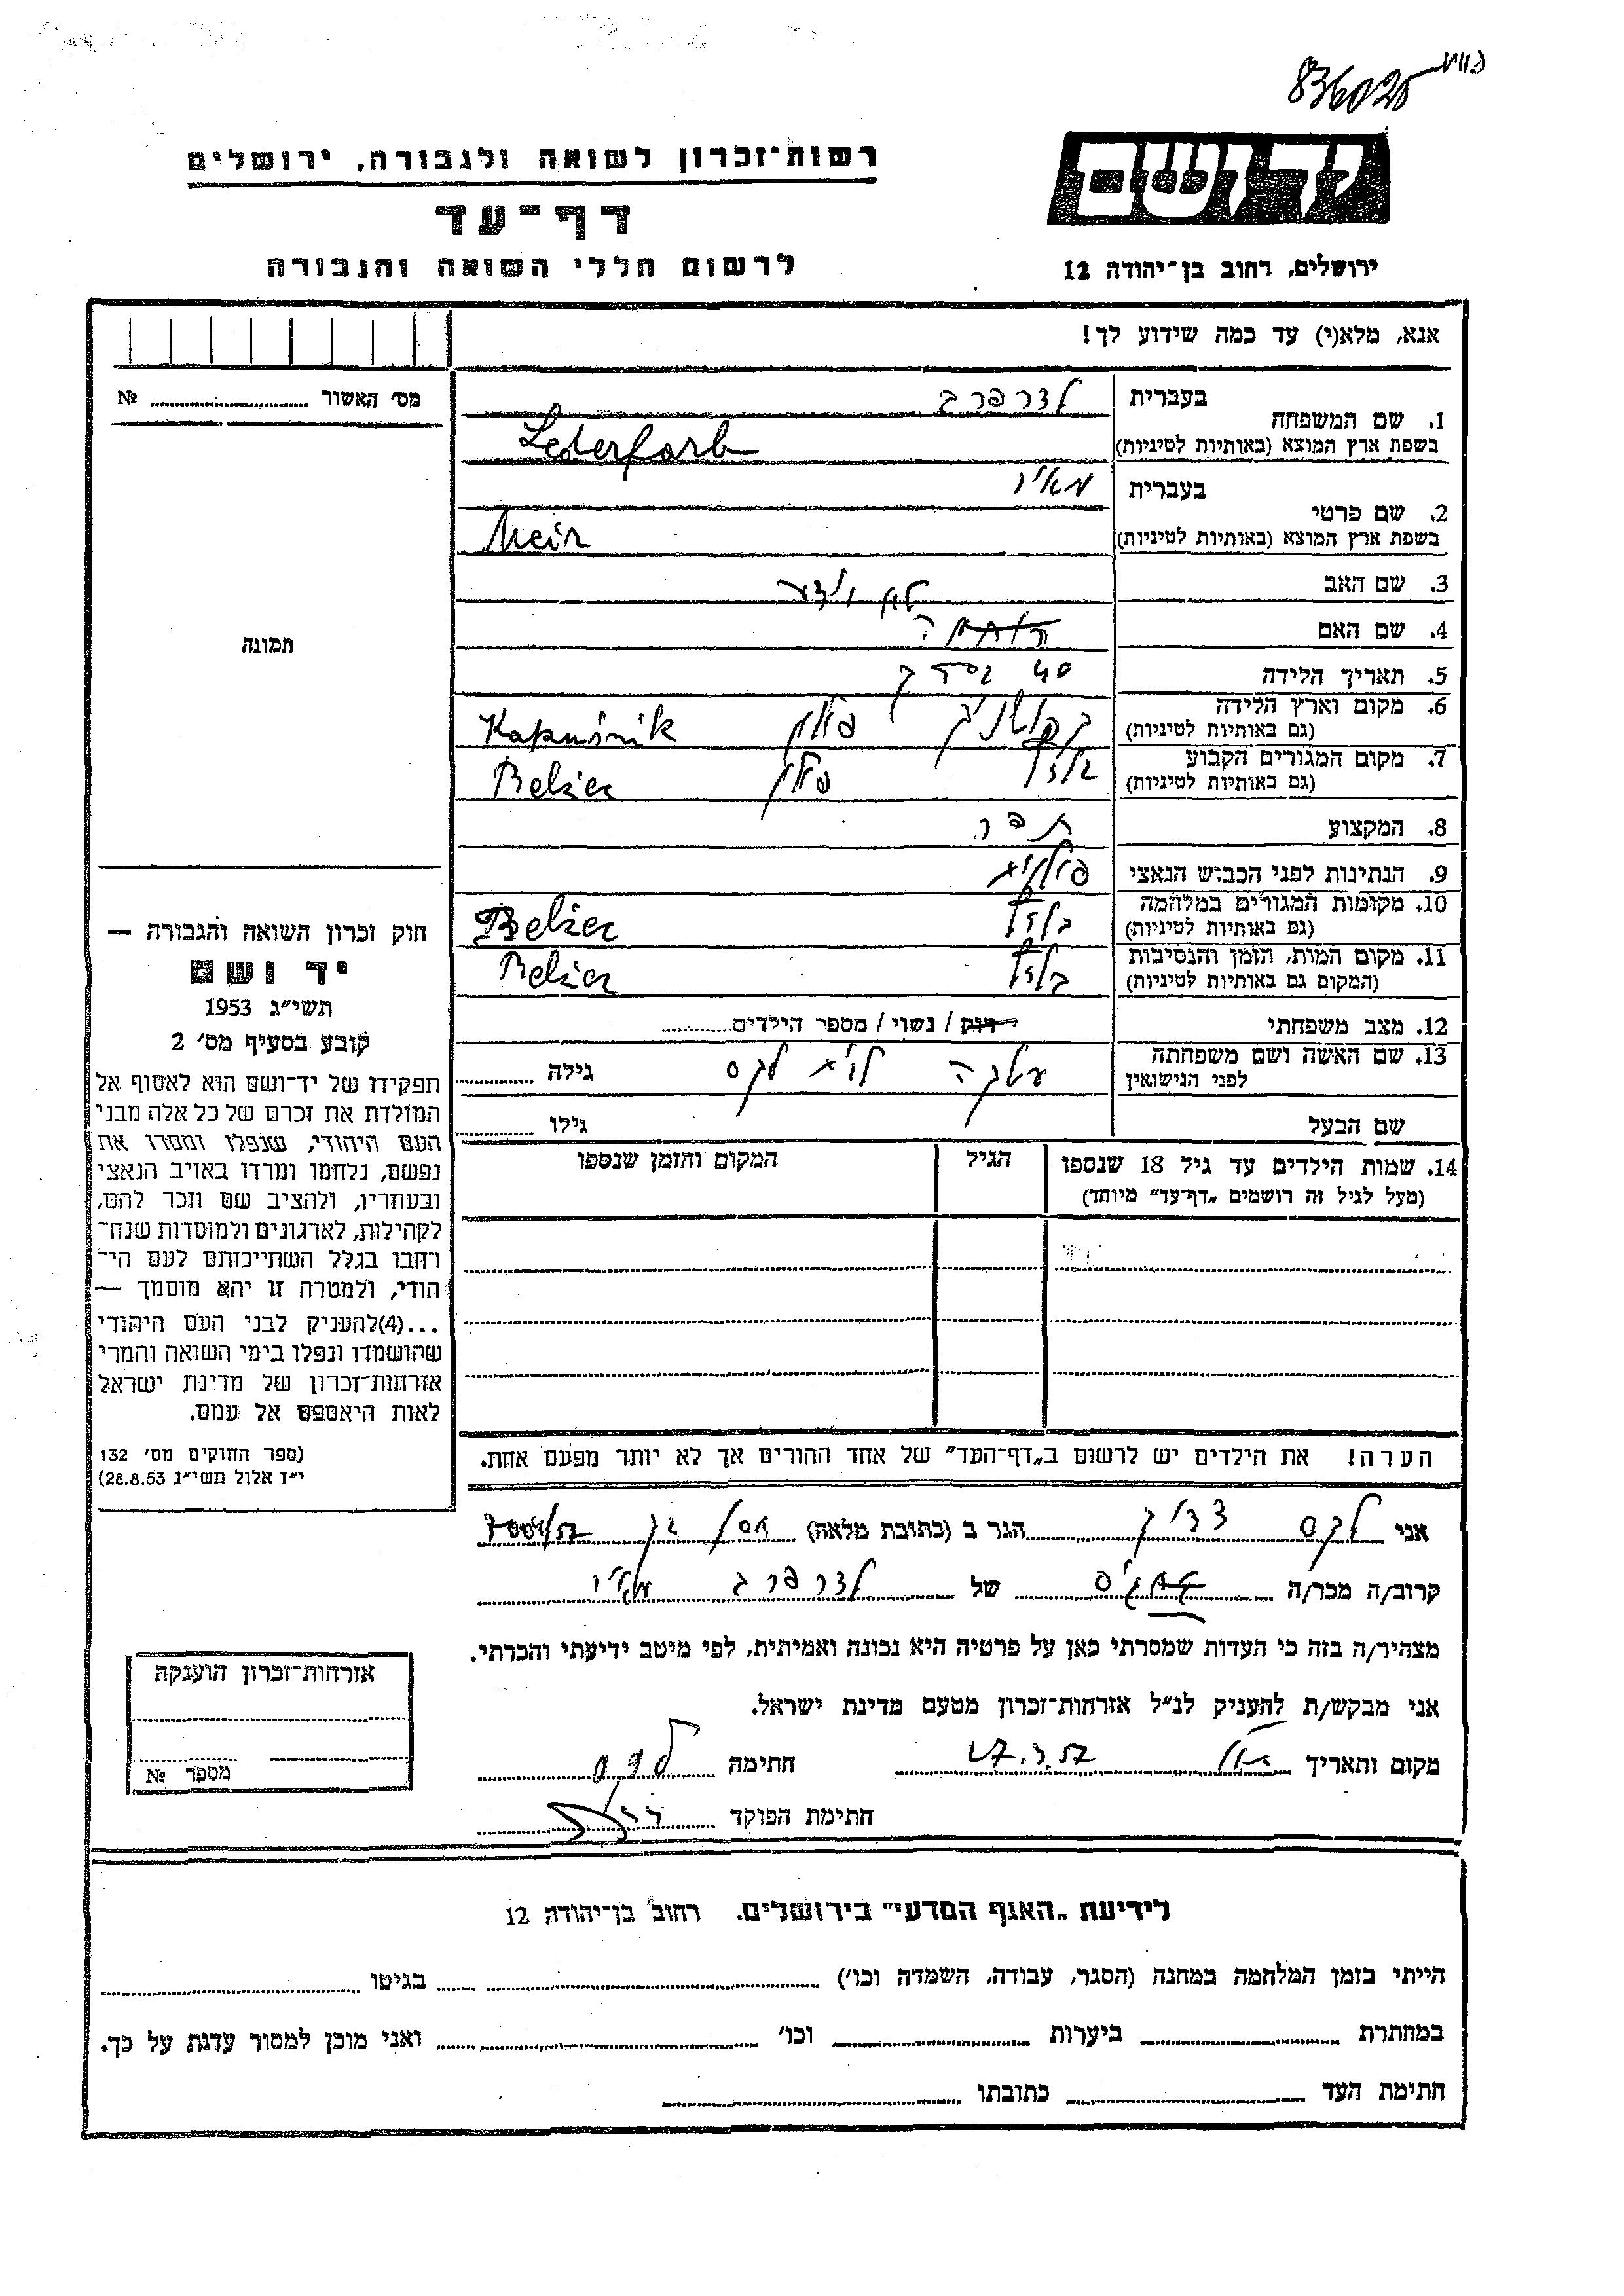 836025
רשות־זכרון לשואה ולגבורה, ירושלים
דף־עד
לרשום חללי השואה והגבורה
יד ושם
ירושלים, רחוב בן־יהודה 12
אנא, מלא(י) עד כמה שידוע לך!
מס׳ האשור № 
1. שם המשפחה
בעברית לדרפרב
בשפת ארץ המוצא (באותיות לטיניות) Lederfarb
2. שם פרטי
בעברית מאיר
בשפת ארץ המוצא (באותיות לטיניות) Meir
3. שם האב
4. שם האם
5. תאריך הלידה 40
6. מקום וארץ הלידה פולין Kapuśnik
(גם באותיות לטיניות)
7. מקום המגורים הקבוע בלזץ פולין Belzec
(גם באותיות לטיניות)
8. המקצוע תפר
9. הנתינות לפני הכבוש הנאצי פולנית
10. מקומות המגורים במלחמה בלזץ Belzec
(גם באותיות לטיניות)
11. מקום המות, הזמן והנסיבות בלזץ Belzec
(המקום גם באותיות לטיניות)
12. מצב משפחתי רווק / נשוי / מספר הילדים
13. שם האשה ושם משפחתה לפני הנישואין גילה
שם הבעל גילו
14. שמות הילדים עד גיל 18 שנספו
(מעל לגיל זה רושמים „דף־עד״ מיוחד)
הגיל
המקום והזמן שנספו
הערה! את הילדים יש לרשום ב„דף־העד״ של אחד ההורים אך לא יותר מפעם אחת.
תמונה
חוק זכרון השואה והגבורה —
יד ושם
תשי״ג 1953
קובע בסעיף מס׳ 2
תפקידו של יד־ושם הוא לאסוף אל
המולדת את זכרם של כל אלה מבני
העם היהודי, שנפלו ומסרו את
נפשם, נלחמו ומרדו באויב הנאצי
ובעוזריו, ולהציב שם וזכר להם,
לקהילות, לארגונים ולמוסדות שנח־
רבו בגלל השתייכותם לעם הי־
הודי, ולמטרה זו יהא מוסמך —
...(4)להעניק לבני העם היהודי
שהושמדו ונפלו בימי השואה והמרי
אזרחות־זכרון של מדינת ישראל
לאות היאספם אל עמם.
(ספר החוקים מס׳ 132
י״ד אלול תשי״ג 28.8.53)
אני לקס הגר ב (כתובת מלאה)
קרוב/ה מכר/ה של לדרפרב מאיר
מצהיר/ה בזה כי העדות שמסרתי כאן על פרטיה היא נכונה ואמיתית, לפי מיטב ידיעתי והכרתי.
אני מבקש/ת להעניק לנ״ל אזרחות־זכרון מטעם מדינת ישראל.
מקום ותאריך חתימה
חתימת הפוקד
אזרחות־זכרון הוענקה
מספר №
לידיעת „האגף המדעי״ בירושלים. רחוב בן־יהודה 12
הייתי בזמן המלחמה במחנה (הסגר, עבודה, השמדה וכו׳) בגיטו
במחתרת ביערות וכו׳ ואני מוכן למסור עדות על כך.
חתימת העד כתובתו